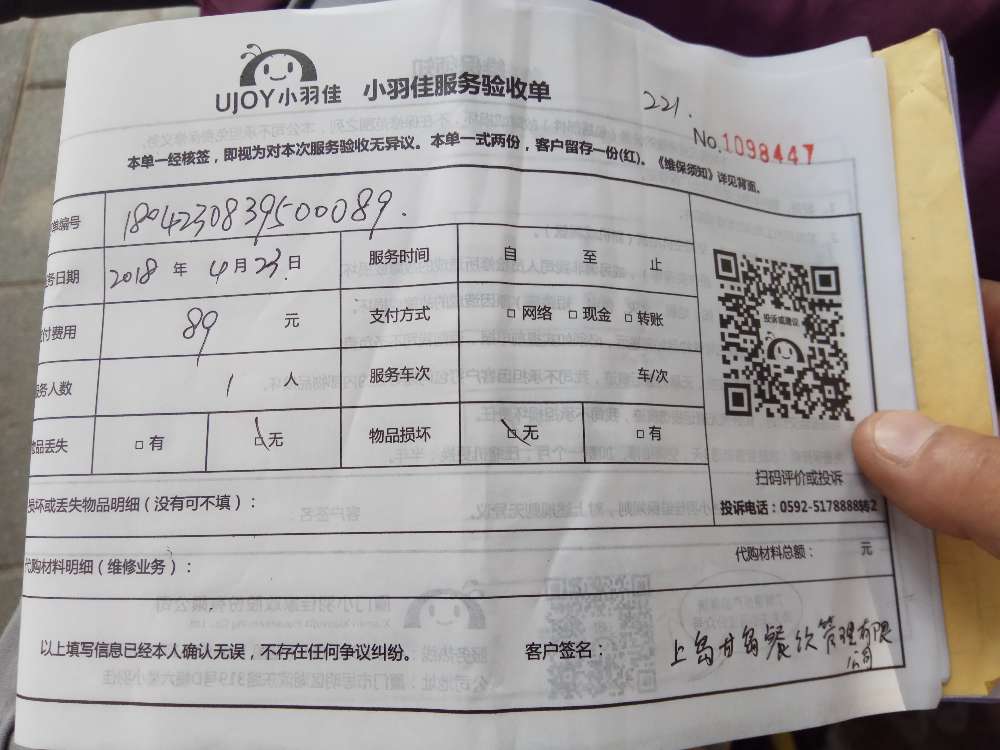 UJOY小羽佳 小羽佳服务验收单
221.
No.1098447
本单一经核签，即视为对本次服务验收无异议。本单一式两份，客户留存一份(红)。《维保须知》详见背面。
单编号 1804230839500089.
务日期 2018 年 4 月 23 日 服务时间 自 至 止
付费用 89 元 支付方式 □ 网络 □ 现金 □ 转账
服务人数 1 人 服务车次 车/次
物品丢失 □ 有 □ 无 物品损坏 □ 无 □ 有
投诉或建议
扫码评价或投诉
投诉电话：0592-5178888
损坏或丢失物品明细（没有可不填）：
代购材料明细（维修业务）： 代购材料总额： 元
以上填写信息已经本人确认无误，不存在任何争议纠纷。 客户签名： 上岛甘岛餐饮管理有限
公司